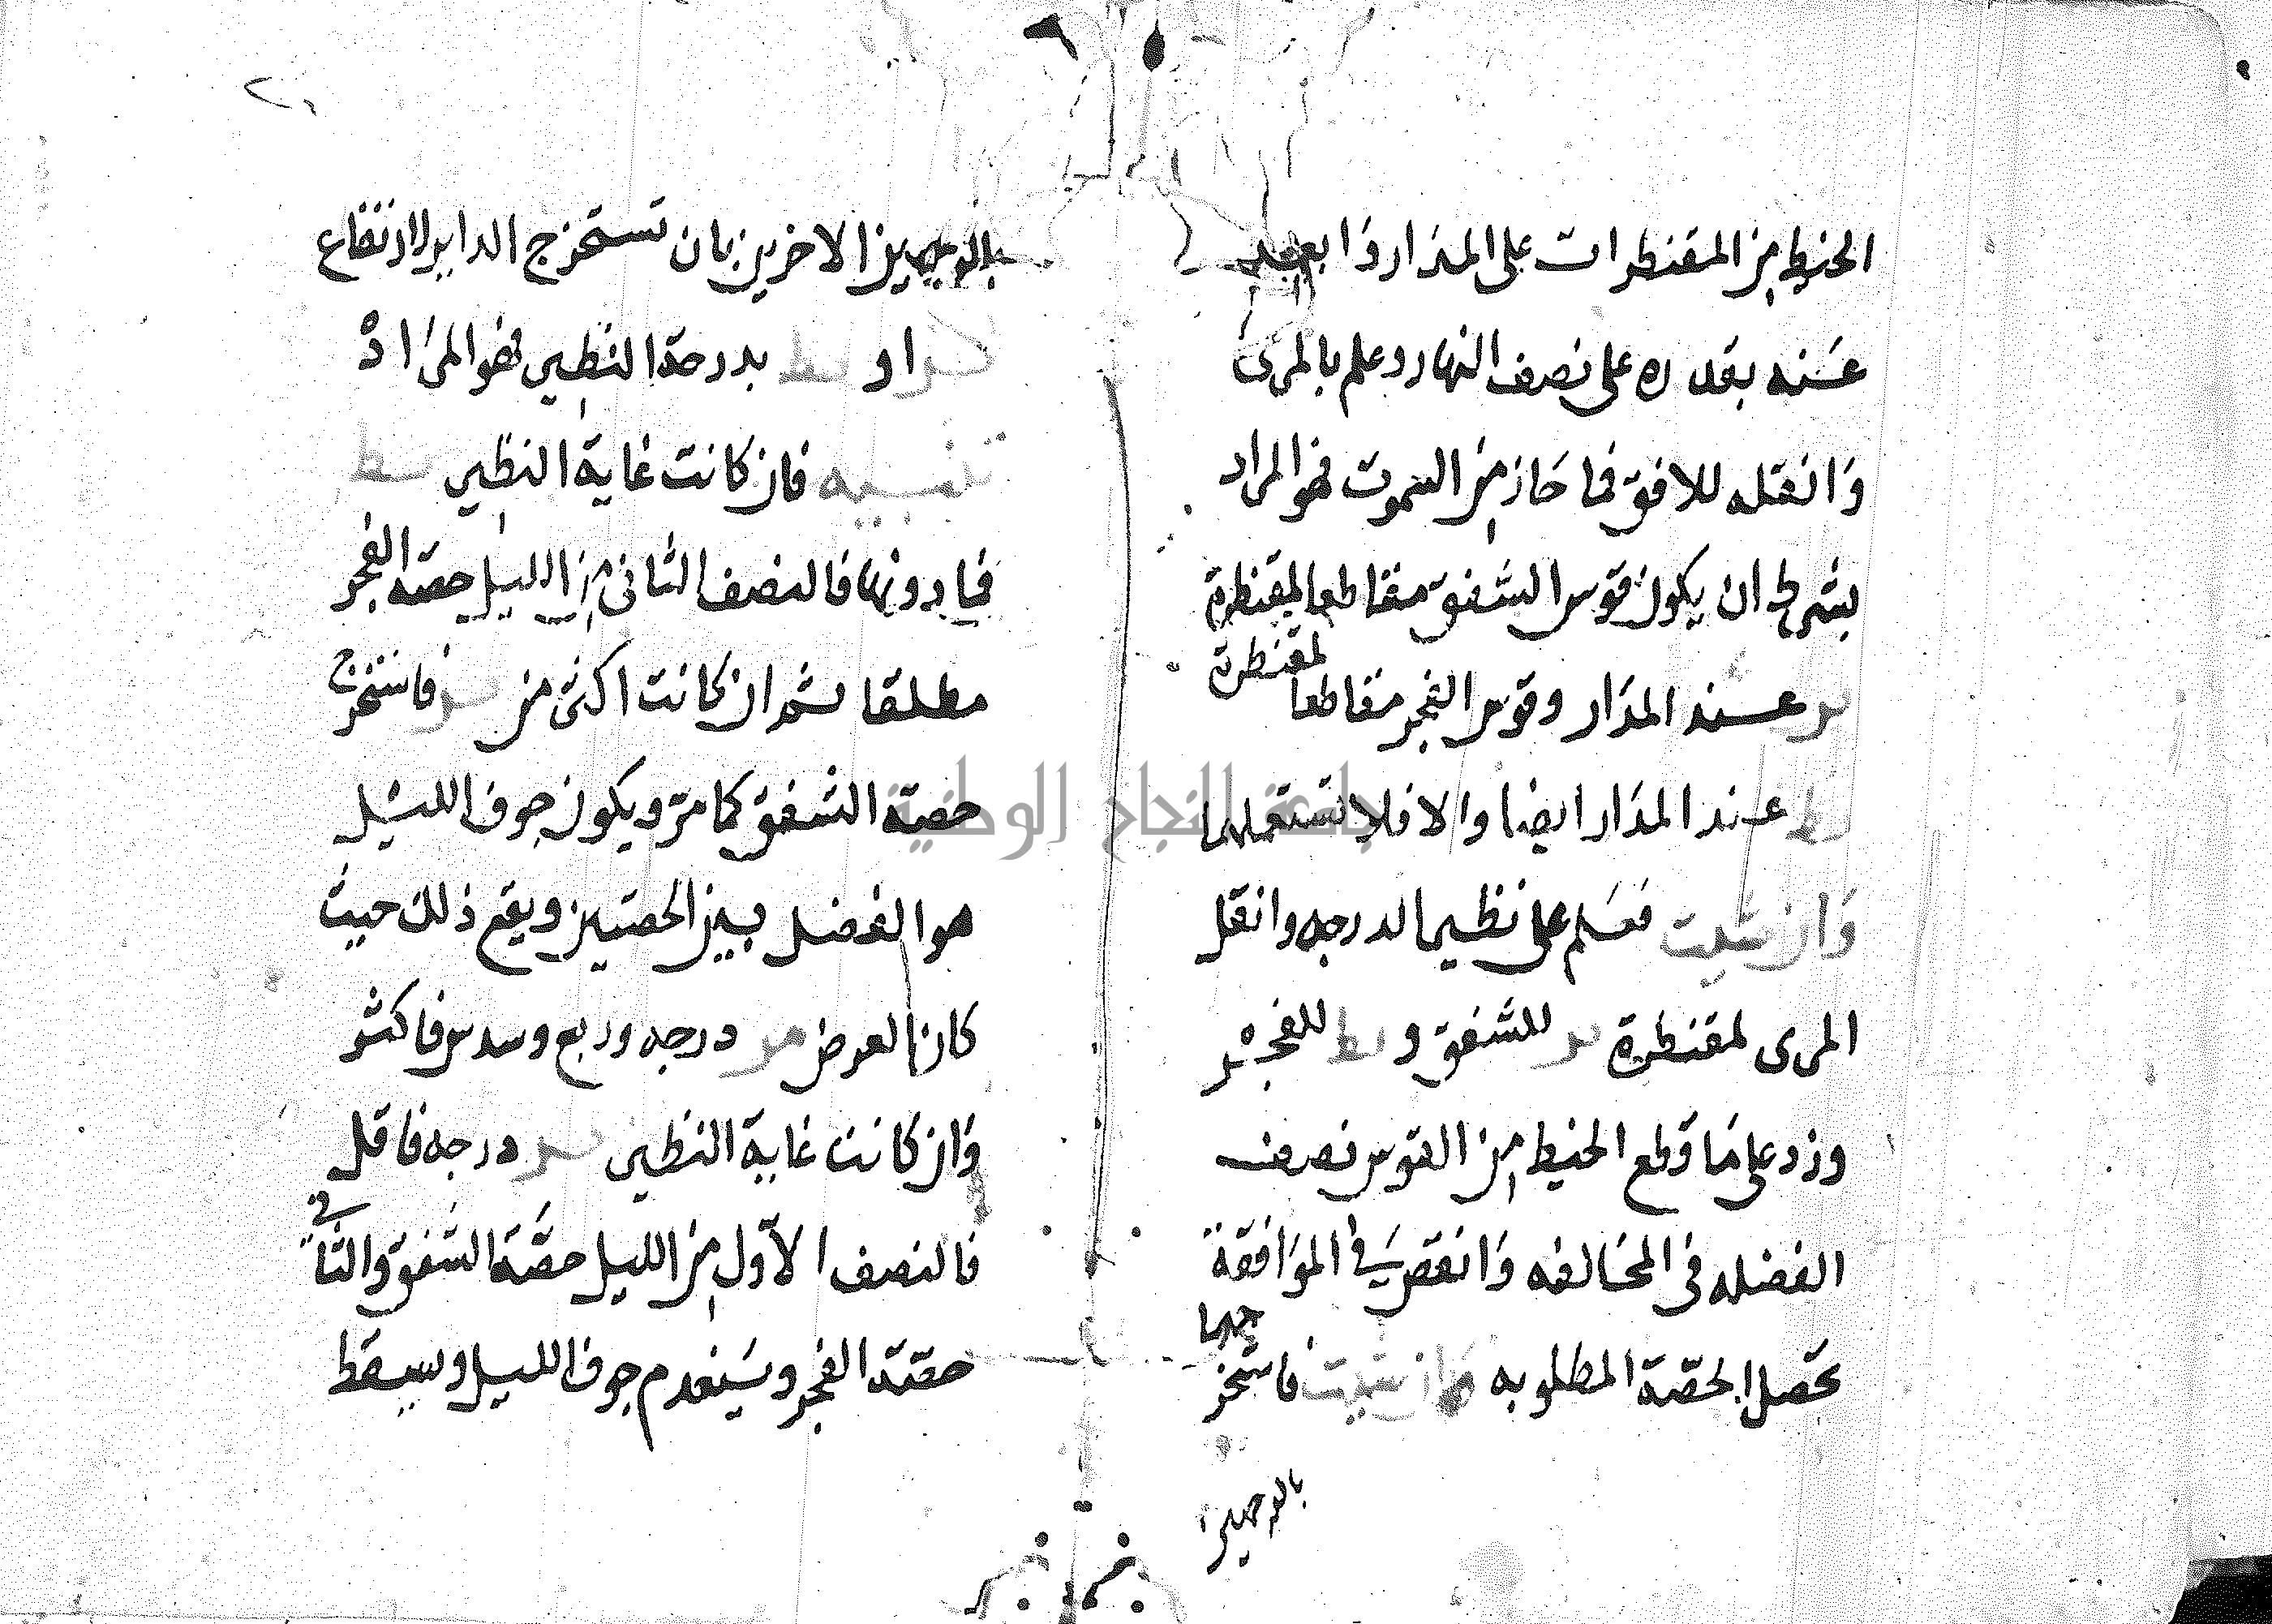 الخيط من المقنطرات على المدار وابعد
عنه بقدره على نصف النهار وعلم بالمرى
وانقله للافق فما حاز من السموت فهو المراد
بشرط ان يكون قوس الشفق مقاطعا لمقنطرة
عند المدار وقوس الفجر مقاطعا لمقنطرة
عند المدار ايضا والا فلا تستعملهما
وان شيت فعلم على نظير الدرجه وانقل
المرى لمقنطرة للشفق و للفجر
وزد على ما قطع الخيط من القوس نصف
الفضله فى المخالفه وانقص فى الموافقة
تحصل الحصة المطلوبه وان شيت فاستخرجهما
بالوجهين
٢٠
بالوجهين الاخرين بان تستخرج الداير لارتفاع
او بدرجة النظير فهو المراد
تنبيه فان كانت غاية النظير
فما دونها فالنصف الثانى من الليل حصة الفجر
مطلقا ثم ان كانت اكثر من فاستخرج
حصة الشفق كما مر ويكون جوف الليل
هو الفضل بين الحصتين ويقع ذلك حيث
كان العرض درجه وربع وسدس فاكثر
وان كانت غاية النظير درجه فاقل
فالنصف الاول من الليل حصة الشفق والثانى
حصة الفجر وسينعدم جوف الليل وسيسقط
جامعة النجاح الوطنية